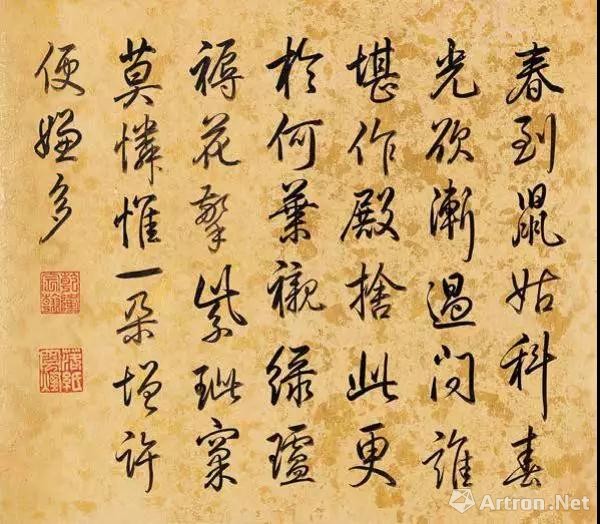 春到鼠姑科春
光欲漸過問誰
堪作殿捨此更
於何葉襯綠瓐
褥花擎紫玼窠
莫憐惟一朵增許
便嫌多
乾隆宸翰
落紙雲煙
Artron.Net